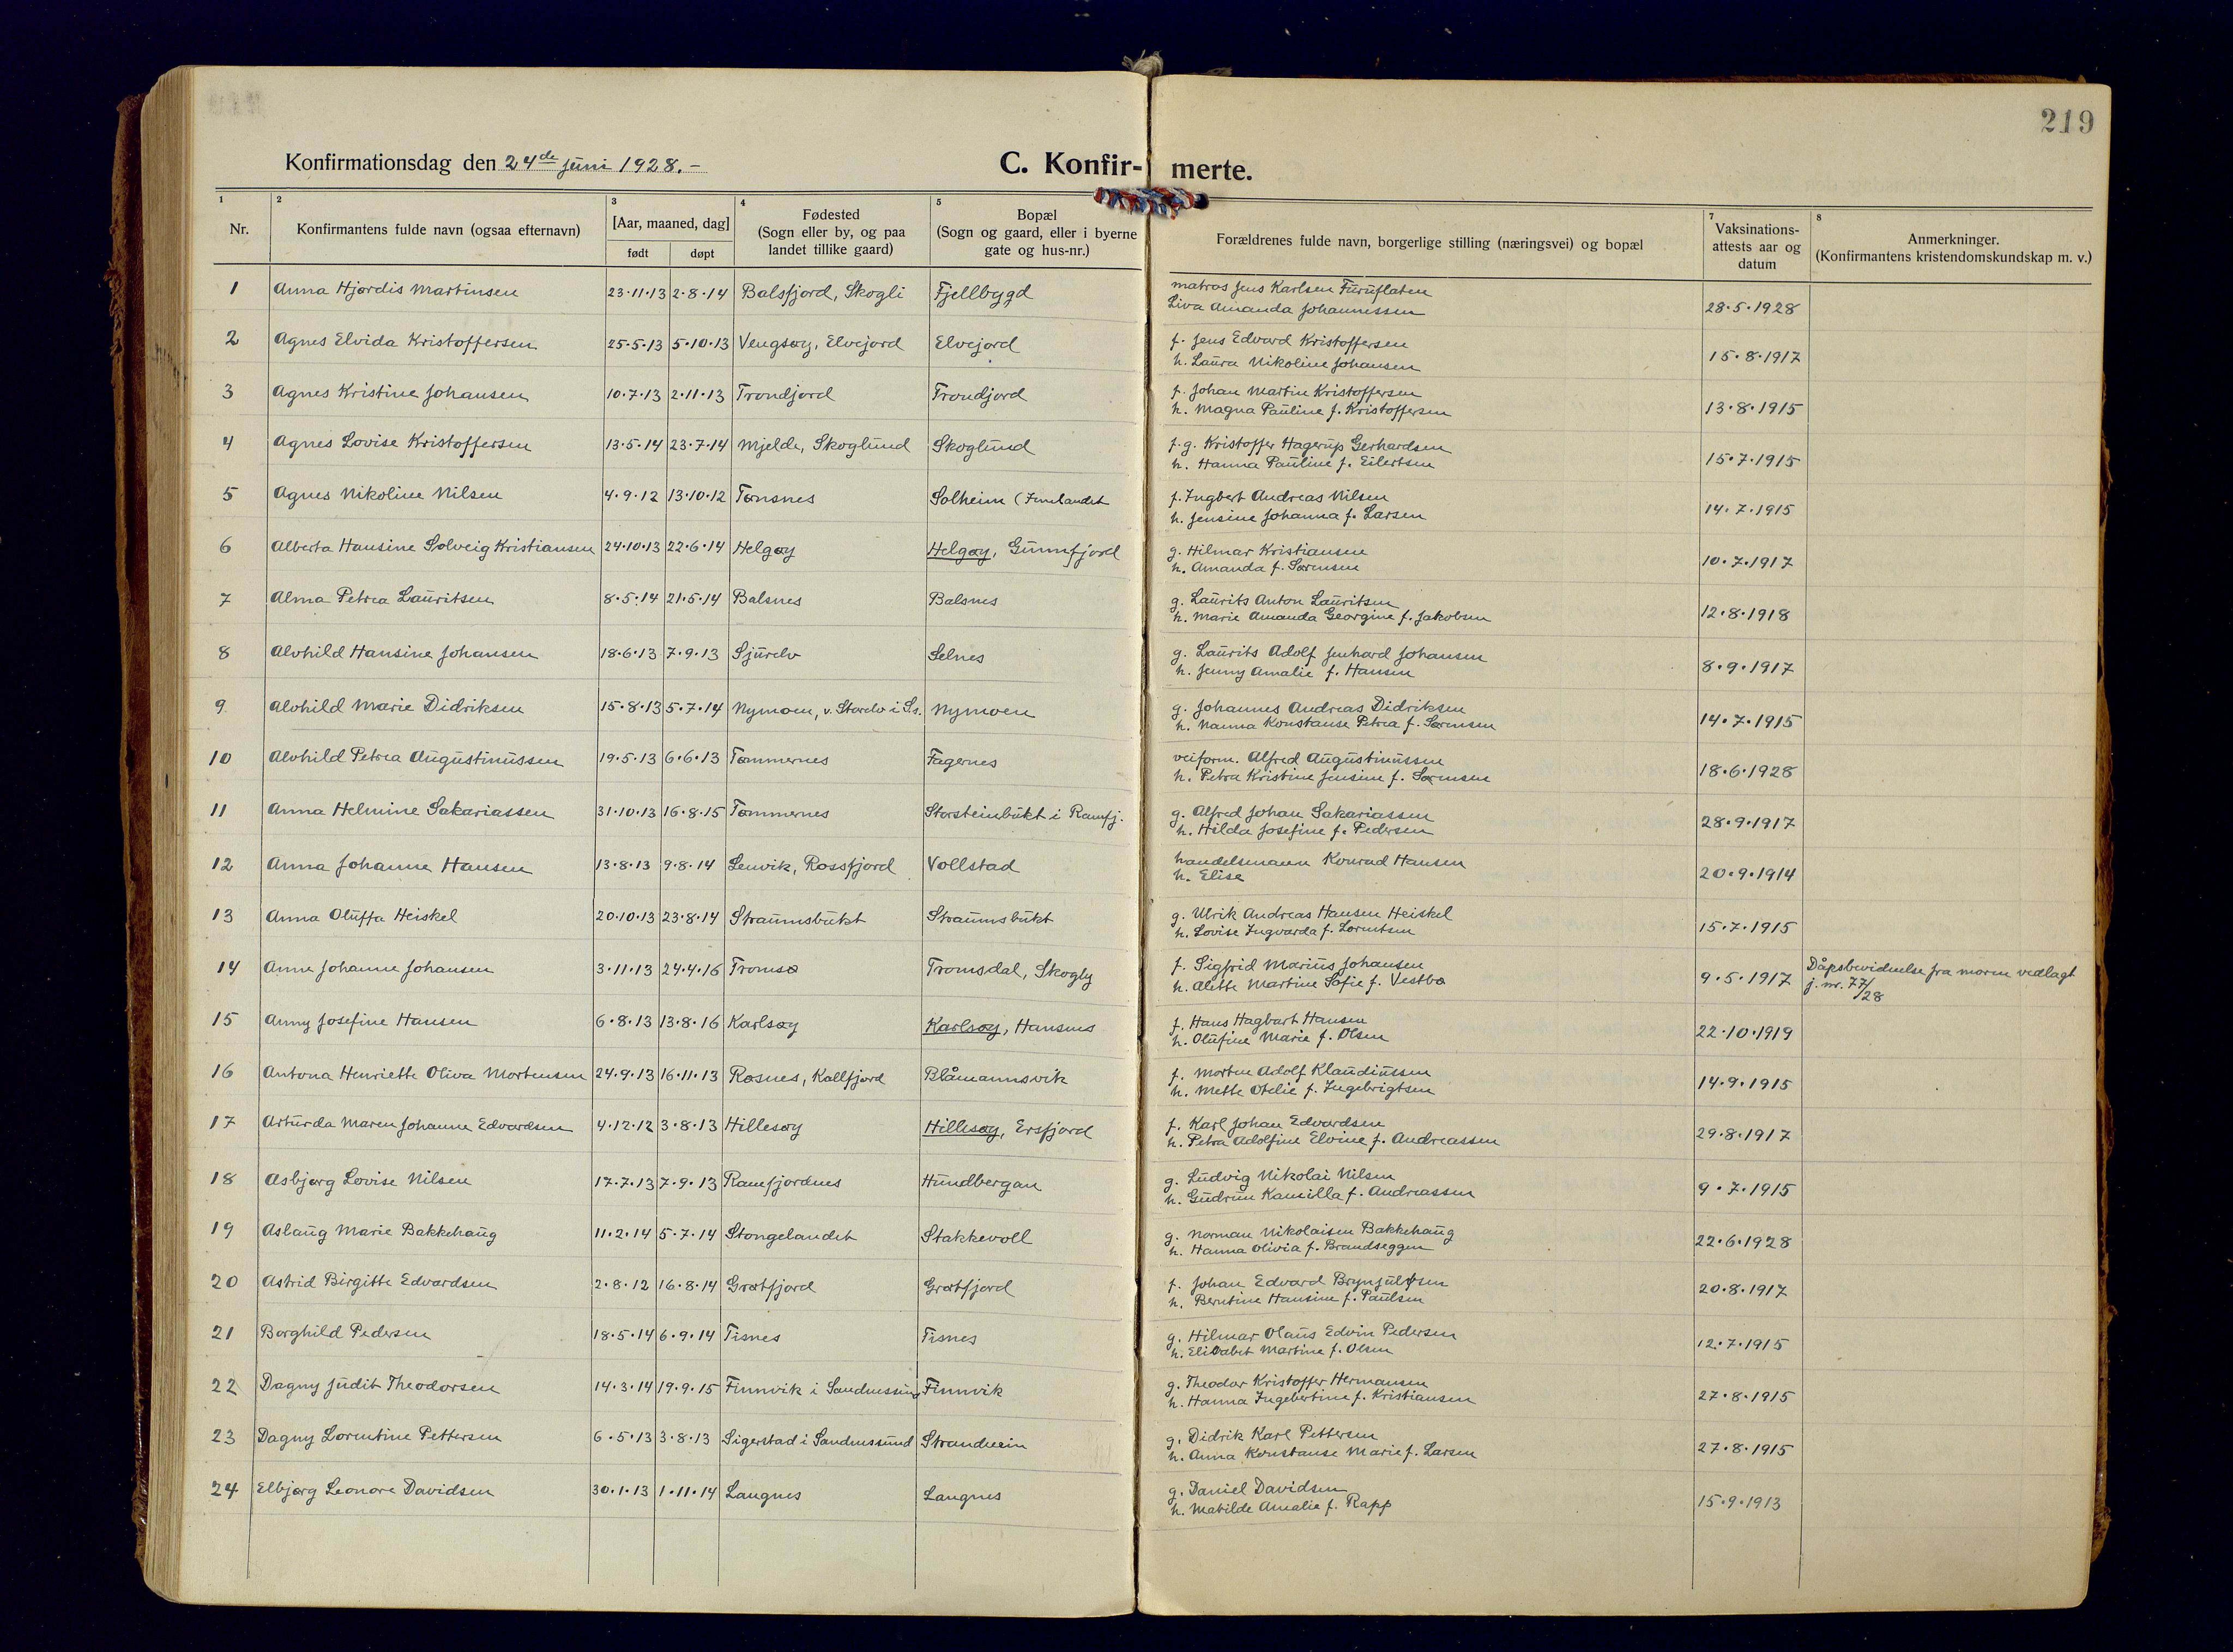 219
Konfirmationsdag den 24de juni 1928.-
C. Konfir- merte.
1 2 3 4 5 7 8
Nr.
Konfirmantens fulde navn (ogsaa efternavn)
[Aar, maaned, dag]
født døpt
Fødested
(Sogn eller by, og paa
landet tillike gaard)
Bopæl
(Sogn og gaard, eller i byerne
gate og hus-nr.)
Forældrenes fulde navn, borgerlige stilling (næringsvei) og bopæl
Vaksinations-
attests aar og
datum
Anmerkninger.
(Konfirmantens kristendomskundskap m. v.)
1 Anna Hjørdis Martinsen 23.11.13 2.8.14 Balsfjord, Skogli Fjellbygd matros Jens Karlsen Furuflaten
Liva Amanda Johannessen 28.5.1928
2 Agnes Elvida Kristoffersen 25.5.13 5.10.13 Vengsøy, Elvejord Elvejord f. Jens Edvard Kristoffersen
h. Laura Nikoline Johansen 15.8.1917
3 Agnes Kristine Johansen 10.7.13 2.11.13 Trondjord Trondjord f. Johan Martin Kristoffersen
h. Magna Pauline f. Kristoffersen 13.8.1915
4 Agnes Lovise Kristoffersen 13.5.14 23.7.14 Mjelde, Skoglund Skoglund f.g. Kristoffer Hagerup Gerhardsen
h. Hanna Pauline f. Eilertsen 15.7.1915
5 Agnes Nikoline Nilsen 4.9.12 13.10.12 Tønsnes Solheim (Innlandet f. Ingbert Andreas Nilsen
h. Jensine Johanna f. Larsen 14.7.1915
6 Alberta Hansine Solveig Kristiansen 24.10.13 22.6.14 Helgøy Helgøy, Gunnfjord g. Hilmar Kristiansen
h. Amanda f. Sørensen 10.7.1917
7 Alma Petrea Lauritsen 8.5.14 21.5.14 Balsnes Balsnes g. Laurits Anton Lauritsen
h. Marie Amanda Georgine f. Jakobsen 12.8.1918
8 Alvhild Hansine Johansen 18.6.13 7.9.13 Sjurelv Selnes g. Laurits Adolf Jenhard Johansen
h. Jenny Amalie f. Hansen 8.9.1917
9 Alvhild Marie Didriksen 15.8.13 5.7.14 Nymoen, v. Storelv i S.s. Nymoen g. Johannes Andreas Didriksen
h. Nanna Konstanse Petrea f. Sørensen 14.7.1915
10 Alvhild Petrea Augustinussen 19.5.13 6.6.13 Tømmernes Fagernes veiform. Alfred Augustinussen
h. Petra Kristine Jensine f. Sørensen 18.6.1928
11 Anna Helmine Sakariassen 31.10.13 16.8.15 Tømmernes Storsteinbukt i Ramfj. g. Alfred Johan Sakariassen
h. Hilda Josefine f. Pedersen 28.9.1917
12 Anna Johanne Hansen 13.8.13 9.8.14 Lenvik, Rossfjord Vollstad handelsmann Konrad Hansen
h. Elise 20.9.1914
13 Anna Oluffa Heiskel 20.10.13 23.8.14 Straumsbukt Straumsbukt g. Ulrik Andreas Hansen Heiskel
h. Lovise Ingvarda f. Lorentsen 15.7.1915
14 Anne Johanne Johansen 3.11.13 24.4.16 Tromsø Tromsdal, Skogly f. Sigfrid Marius Johansen
h. Alette Martine Sofie f. Vestbø 9.5.1917 Dåpsbevidnelse fra moren vedlagt
j. nr. 77/28
15 Anny Josefine Hansen 6.8.13 13.8.16 Karlsøy Karlsøy, Hansnes f. Hans Hagbart Hansen
h. Olufine Marie f. Olsen 22.10.1919
16 Antona Henriette Oliva Mortensen 24.9.13 16.11.13 Røsnes, Kallfjord Blåmannsvik f. Morten Adolf Klaudiussen
h. Mette Otelie f. Ingebrigtsen 14.9.1915
17 Arturda Maren Johanne Edvardsen 4.12.12 3.8.13 Hillesøy Hillesøy, Ersfjord f. Karl Johan Edvardsen
h. Petra Adolfine Elvine f. Andreassen 29.8.1917
18 Asbjørg Lovise Nilsen 17.7.13 7.9.13 Ramfjordnes Hundbergan g. Ludvig Nikolai Nilsen
h. Gudrun Kamilla f. Andreassen 9.7.1915
19 Aslaug Marie Bakkehaug 11.2.14 5.7.14 Stongelandet Stakkevoll g. Norman Nikolaisen Bakkehaug
h. Hanna Olivia f. Brandseggen 22.6.1928
20 Astrid Birgitte Edvardsen 2.8.12 16.8.14 Grøtfjord Grøtfjord f. Johan Edvard Brynjulfsen
h. Berntine Hansine f. Paulsen 20.8.1917
21 Borghild Pedersen 18.5.14 6.9.14 Tisnes Tisnes g. Hilmar Olaus Edvin Pedersen
h. Elisabet Martine f. Olsen 12.7.1915
22 Dagny Judit Theodorsen 14.3.14 19.9.15 Finnvik i Sandnessund Finnvik g. Theodor Kristoffer Hermansen
h. Hanna Ingebertine f. Kristiansen 27.8.1915
23 Dagny Lorentine Pettersen 6.5.13 3.8.13 Sigerstad i Sandnessund Strandheim g. Didrik Karl Pettersen
h. Anna Konstanse Marie f. Larsen 27.8.1915
24 Elbjørg Leonore Davidsen 30.1.13 1.11.14 Langnes Langnes g. Daniel Davidsen
h. Matilde Amalie f. Rapp 15.9.1913